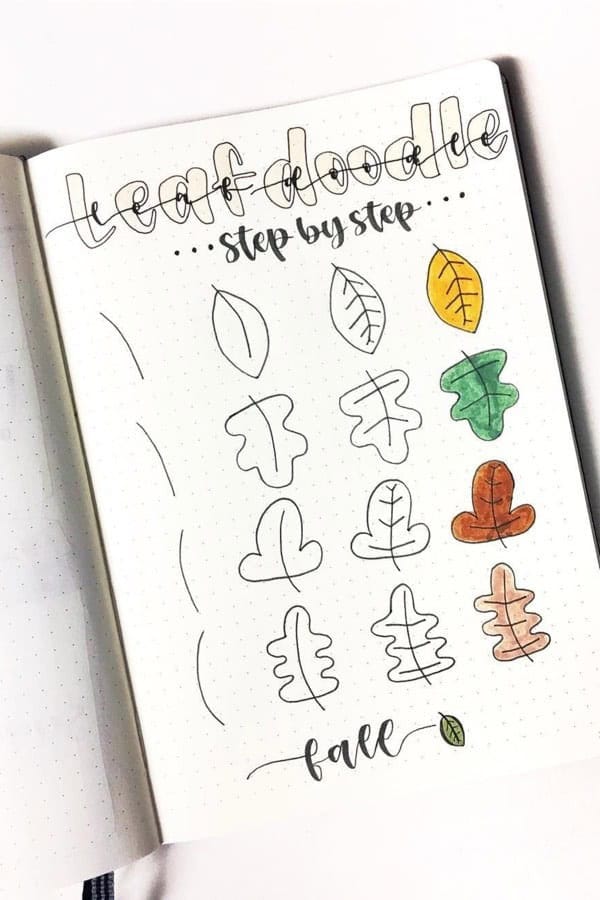 Leaf doodle
...step by step...
fall